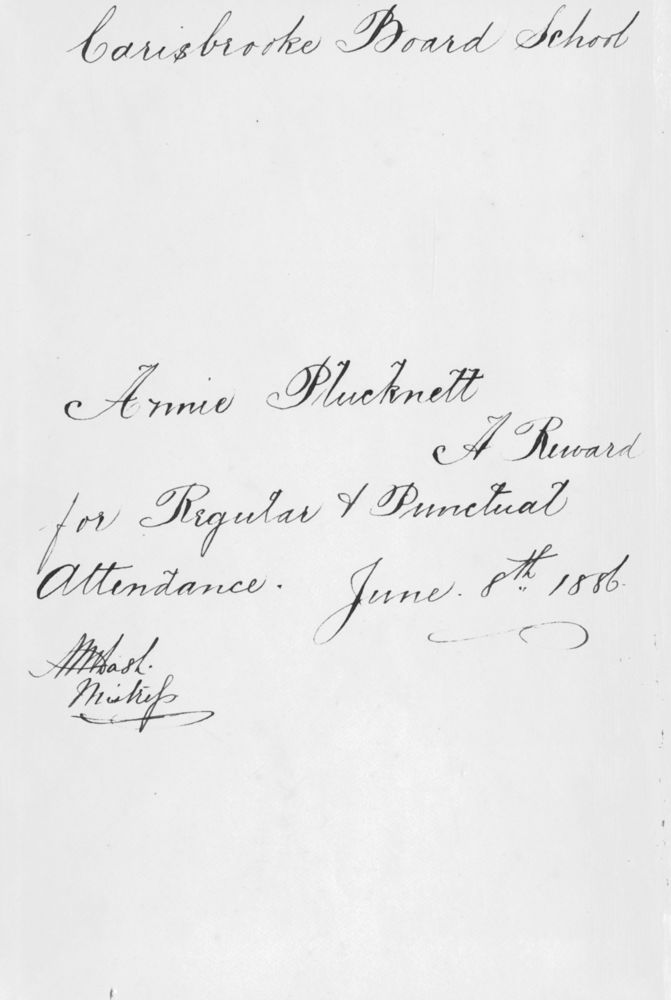 Carisbrooke Board School
Annie Plucknett
A Reward
for Regular & Punctual
Attendance. June. 8th 1886.
Mistress